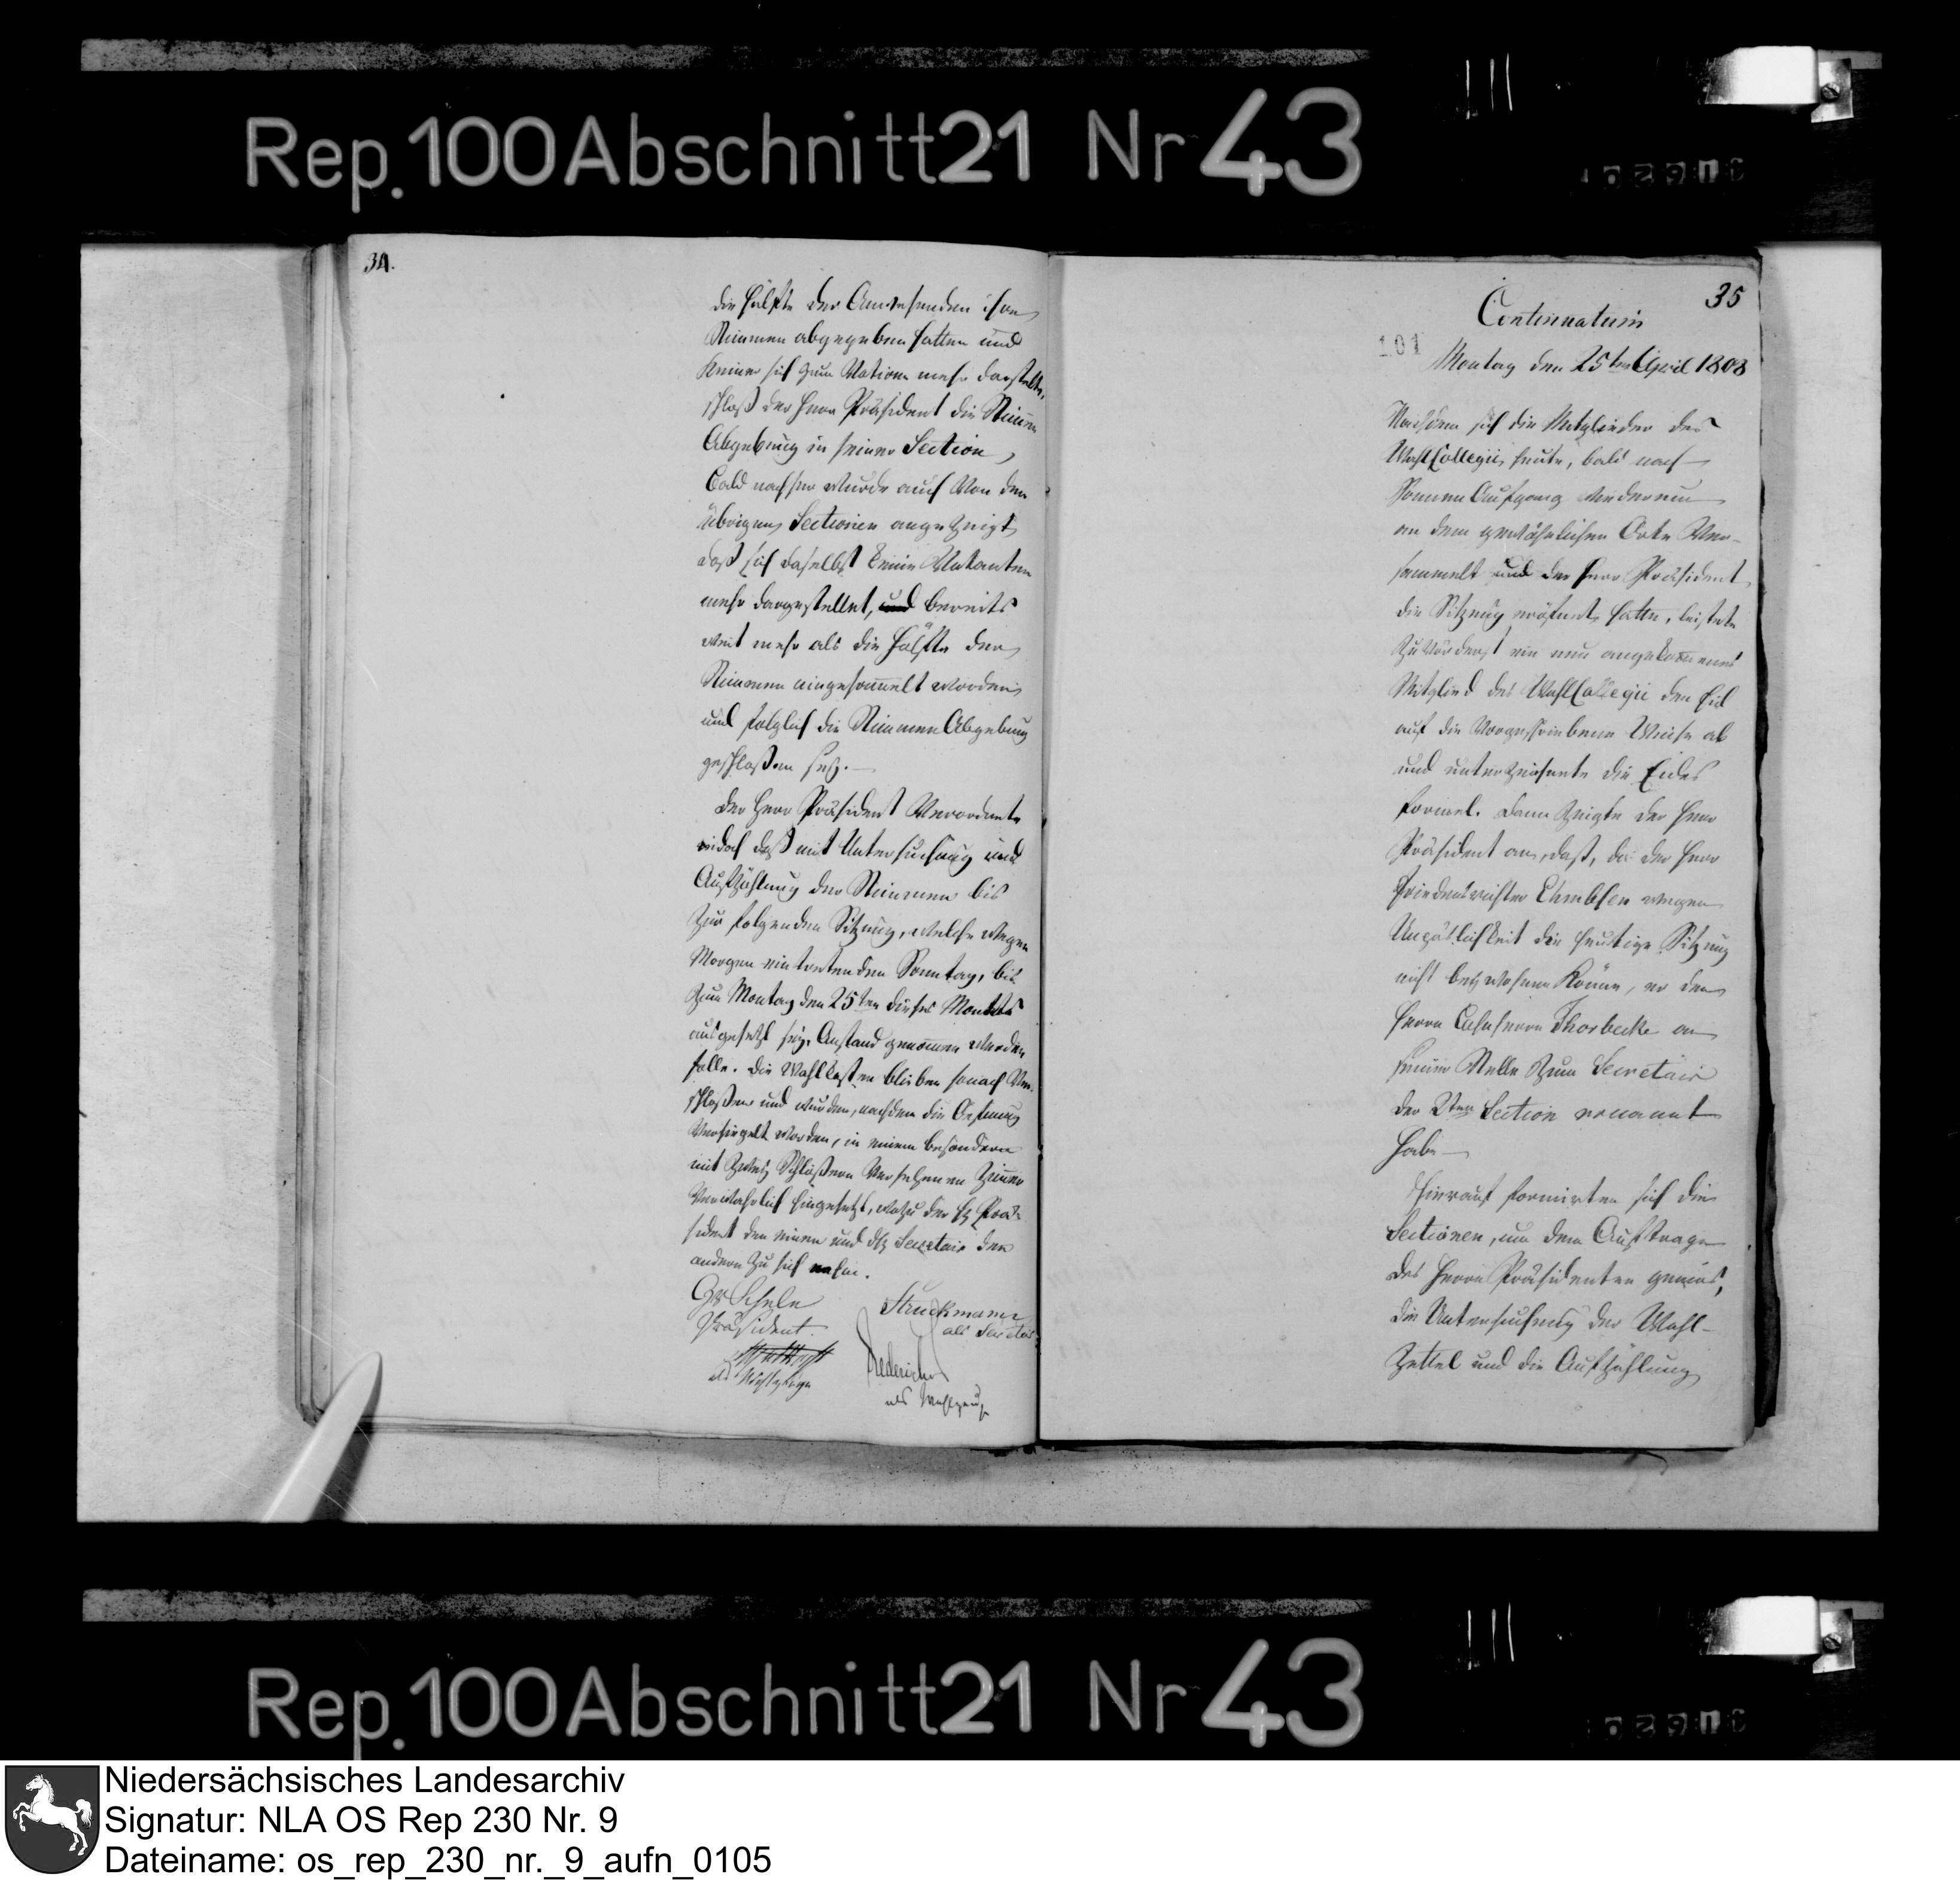 Rep. 100 Abschnitt 21 Nr 43
34.
die Hälfte der Anwesenden ihre
Stimmen abgegeben hatten und
keiner sich zum Votiren mehr darstellte,
schloß der Herr Präsident die Stimmen
Abgebung in seiner Section,
Bald nachher wurde auch von den
übrigen Sectionen angezeigt
daß sich daselbst keine Votanten
mehr dargestellet, und bereits
weit mehr als die Hälfte der
Stimmen eingesammelt worden,
und folglich die Stimmen Abgebung
geschloßen sey.
Der Herr Präsident verordnete
jedoch daß mit Untersuchung und
Aufzählung der Stimmen bis
zur folgenden Sitzung, welche wegen
Morgen eintretenden Sonntag, bis
zum Montag den 25ten dieses Monats
ausgesetzt sey, Anstand genommen werden
solle. Die Wahlkasten blieben sonach ver-
schloßen und wurden, nachdem die Oefnung
versiegelt worden, in einem besondern
mit zwey Schlößern versehenen Zimmer
verwahrlich hingesetzt, wozu der H. Prä-
sident den einen und d. H. Secretair den
andern zu sich nahm.
Gr Schele
Präsident.
Struckmann
als Secretär
als Wahlzeuge
Friederichs
als Wahlzeuge
35
Continuatum
101
Montag den 25ten April 1808
Nachdem sich die Mitglieder des
WahlCollegii heute, bald nach
Sonnen Aufgang wiederum
an dem gewöhnlichen Orte ver-
sammelt und der Herr Präsident
die Sitzung eröfnet hatte, leistete
zuvörderst ein neu angekommenes
Mitglied des WahlCollegii den Eid
auf die vorgeschriebene Weise ab
und unterzeichnete die Eides
formel. Dann zeigte der Herr
Präsident an, daß, da der Herr
Friedensrichter Ehmbsen wegen
Unpäslichkeit die heutige Sitzung
nicht beywohnen könne, er den
Herrn Lehnherrn Thorbecke an
seiner Stelle zum Secretair
der 2ten Section ernannt
habe
Hierauf formirten sich die
Sectionen, um dem Auftrage
des Herrn Präsidenten gemäs,
die Untersuchung der Wahl-
Zettel und die Aufzählung
Rep. 100 Abschnitt 21 Nr 43
Niedersächsisches Landesarchiv
Signatur: NLA OS Rep 230 Nr. 9
Dateiname: os_rep_230_nr._9_aufn_0105